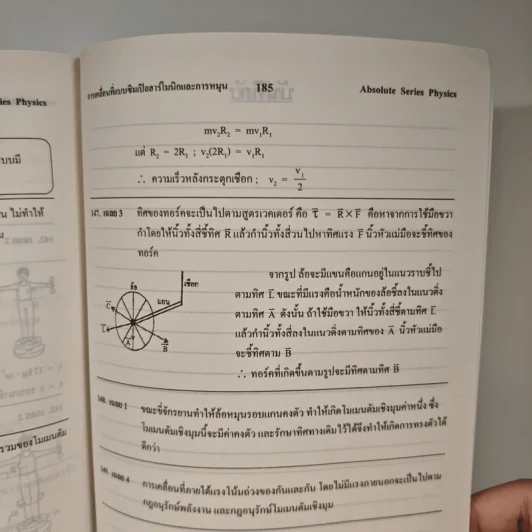 ies Physics
บบมี
น ไม่ทำให้
รวมของโมเมนตัม
การเคลื่อนที่แบบซิมเปิลฮาร์โมนิกและการหมุน 185 Absolute Series Physics
mv₂R₂ = mv₁R₁
แต่ R₂ = 2R₁ ; v₂(2R₁) = v₁R₁
∴ ความเร็วหลังกระตุกเชือก ; v₂ = v₁/2
147. เฉลย 3 ทิศของทอร์คจะเป็นไปตามสูตรเวคเตอร์ คือ τ̄ = R̄ × F̄ คือหาจากการใช้มือขวา
กำโดยให้นิ้วทั้งสี่ชี้ทิศ R̄ แล้วกำนิ้วทั้งสี่วนไปหาทิศแรง F̄ นิ้วหัวแม่มือจะชี้ทิศของ
ทอร์ค
ล้อ
เชือก
แกน
C̄
L̄
Ā
B̄
จากรูป ล้อจะมีแขนคือแกนอยู่ในแนวราบชี้ไป
ตามทิศ L̄ ขณะที่มีแรงคือน้ำหนักของล้อชี้ลงในแนวดิ่ง
ตามทิศ Ā ดังนั้น ถ้าใช้มือขวา ให้นิ้วทั้งสี่ชี้ตามทิศ L̄
แล้วกำนิ้วทั้งสี่ลงในแนวดิ่งตามทิศของ Ā นิ้วหัวแม่มือ
จะชี้ทิศตาม B̄
∴ ทอร์คที่เกิดขึ้นตามรูปจะมีทิศตามทิศ B̄
148. เฉลย 1 ขณะขี่จักรยานทำให้ล้อหมุนรอบแกนคงตัว ทำให้เกิดโมเมนตัมเชิงมุมค่าหนึ่ง ซึ่ง
โมเมนตัมเชิงมุมนี้จะมีค่าคงตัว และรักษาทิศทางเดิมไว้ได้จึงทำให้เกิดการทรงตัวได้
ดีกว่า
149. เฉลย 4 การเคลื่อนที่ภายใต้แรงโน้มถ่วงของกันและกัน โดยไม่มีแรงภายนอกจะเป็นไปตาม
กฎอนุรักษ์พลังงาน และกฎอนุรักษ์โมเมนตัมเชิงมุม